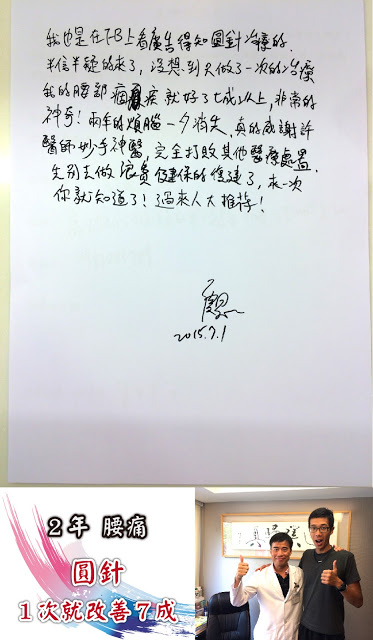 我也是在FB上看廣告得知圓針治療的.
半信半疑的來了, 沒想到只做了一次的治療
我的腰部痼疾就好了七成以上, 非常的
神奇! 兩年的煩腦一夕消失, 真的感謝許
醫師妙手神醫, 完全打敗其他醫療處置.
先別去做浪費健保的復健了, 來一次
你就知道了! 過來人大推荐!
2015.7.1
2年 腰痛
圓針
1次就改善7成